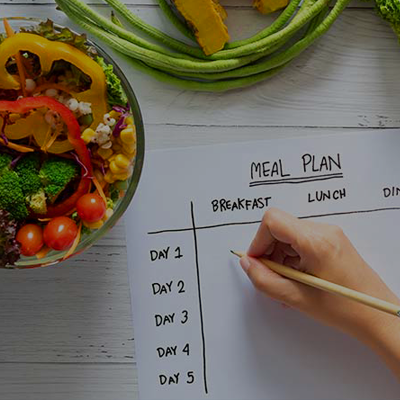 MEAL PLAN
BREAKFAST LUNCH
DAY 1
DAY 2
DAY 3
DAY 4
DAY 5